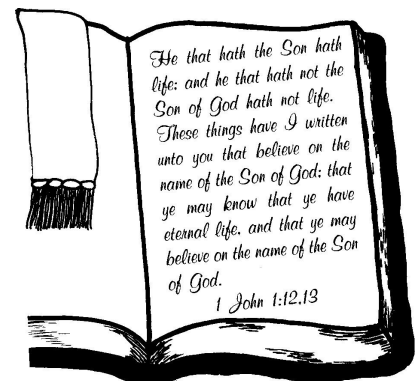 He that hath the Son hath
life; and he that hath not the
Son of God hath not life.
These things have I written
unto you that believe on the
name of the Son of God; that
ye may know that ye have
eternal life, and that ye may
believe on the name of the Son
of God.
1 John 1:12,13